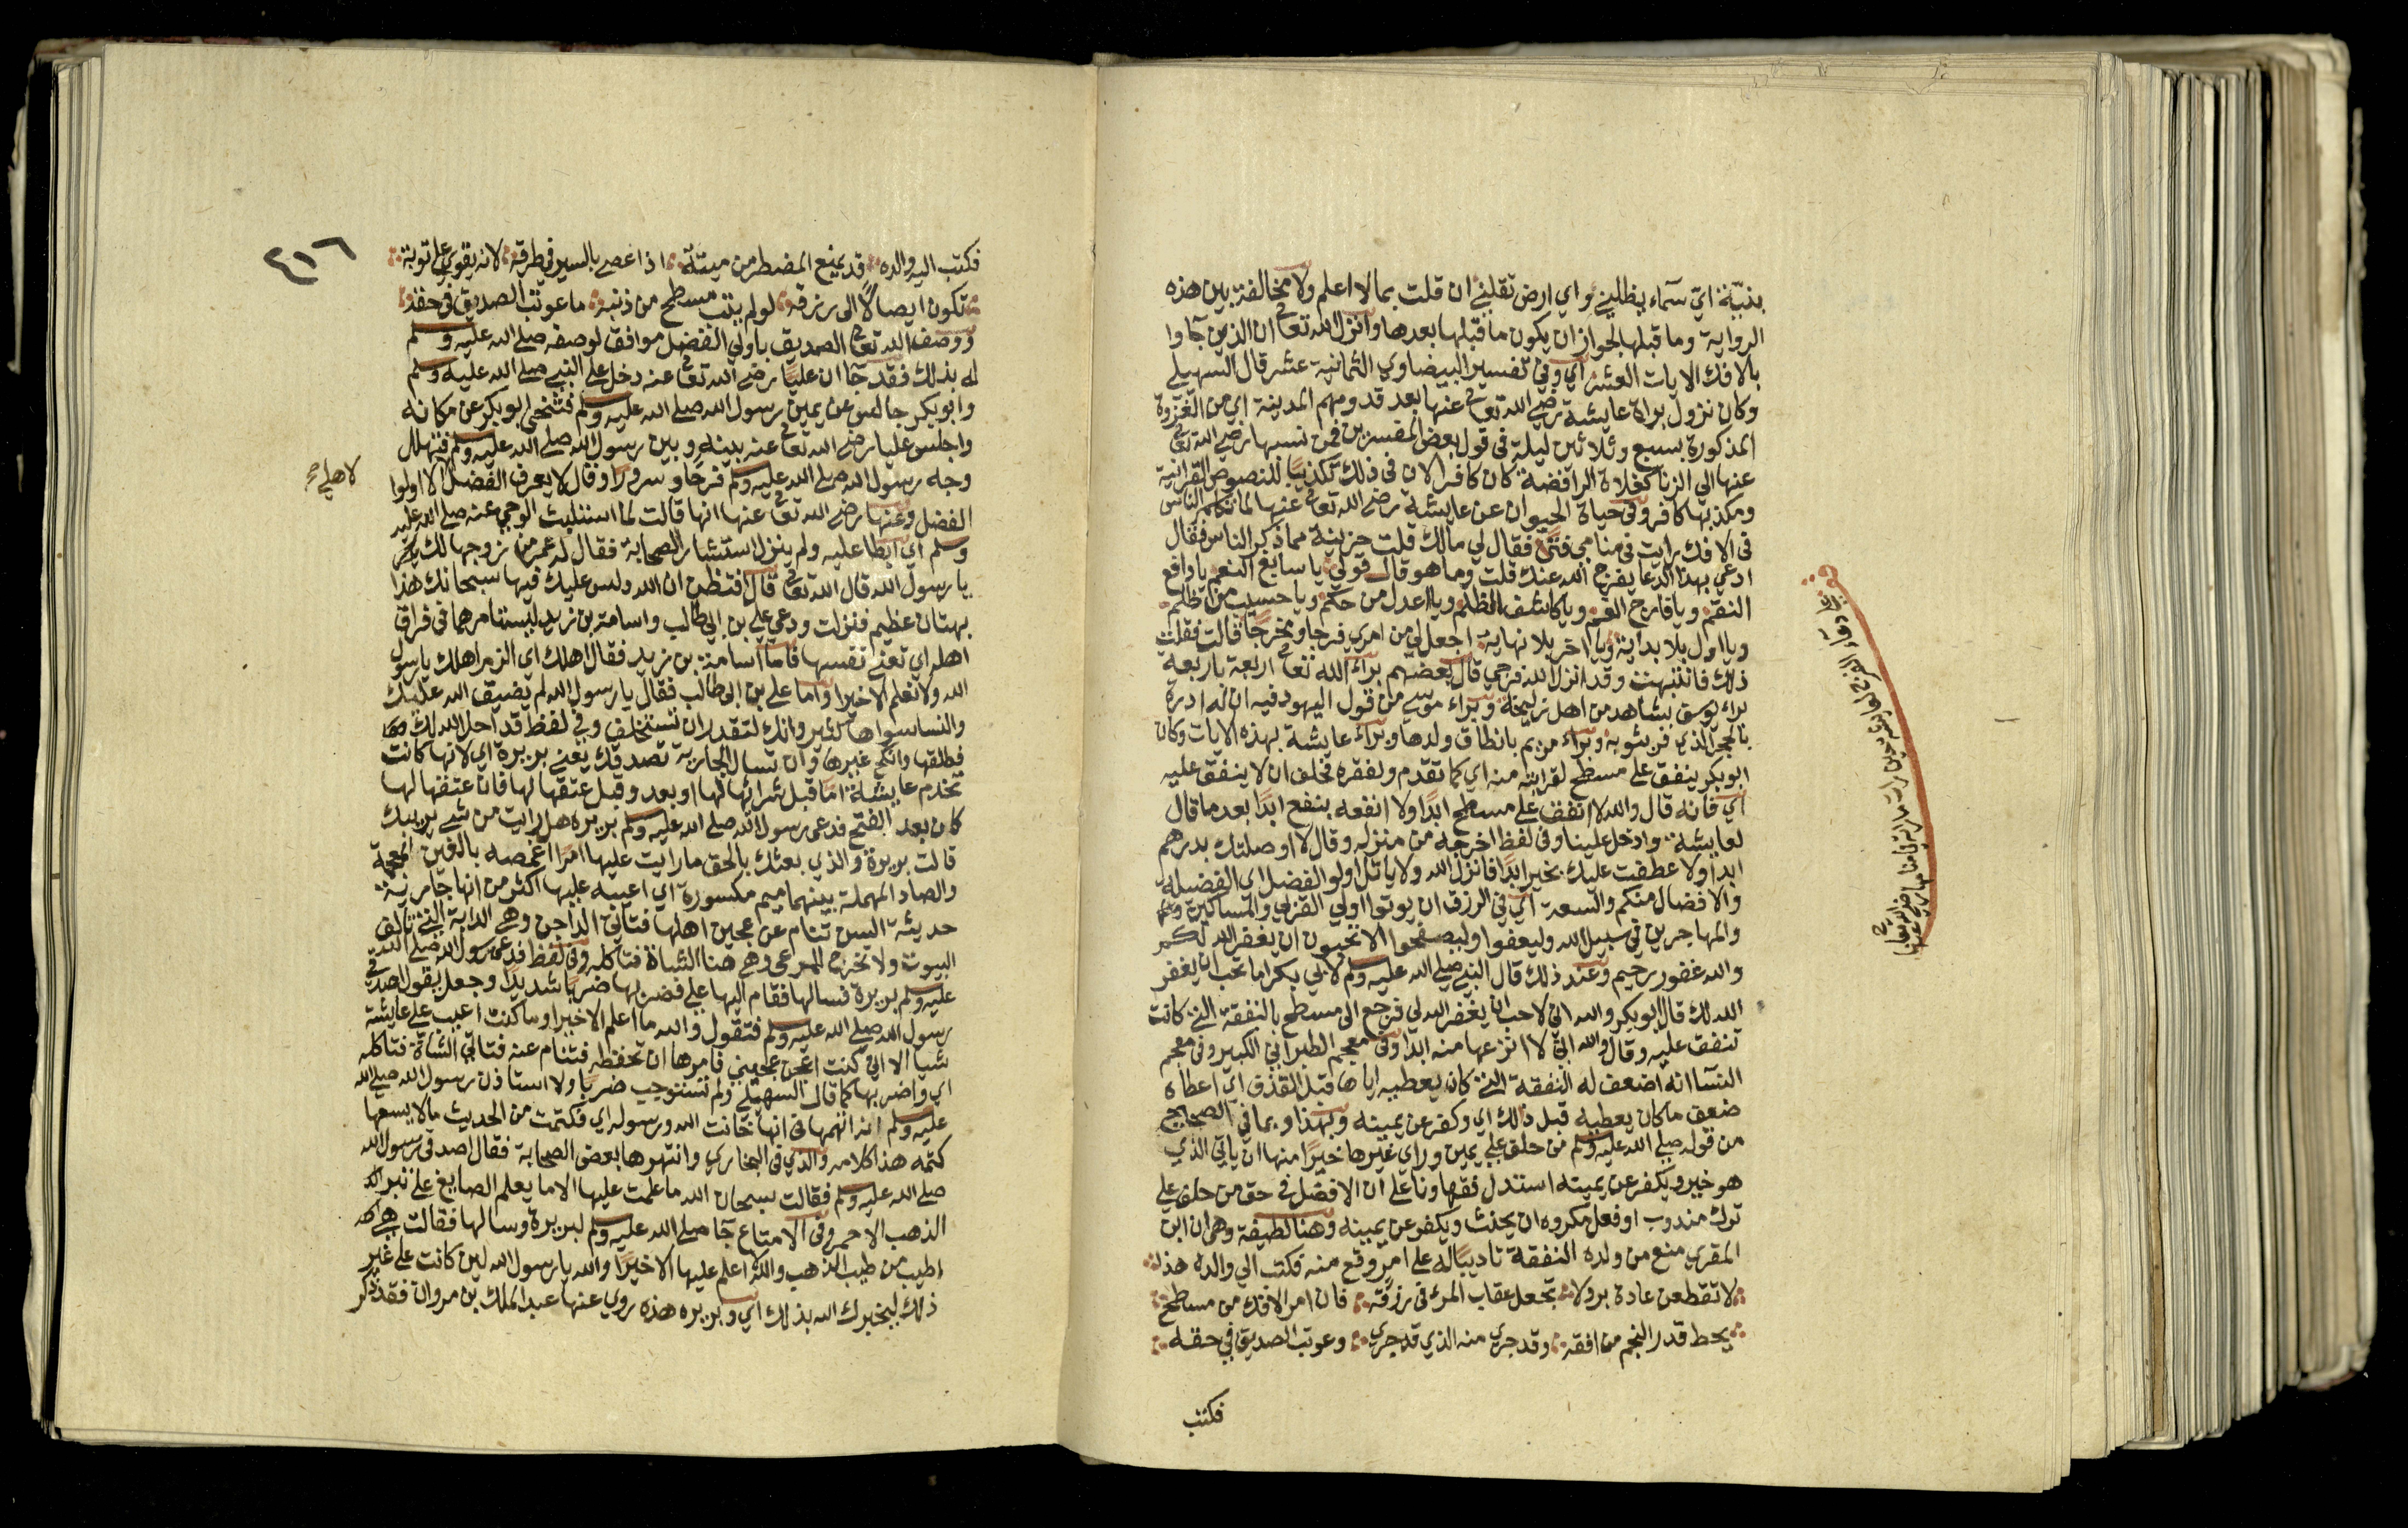 بنيّة اي سماء يظلني واي ارض تقلني ان قلت بما لا اعلم ولا مخالفة بين هذه
الرواية وما قبلها لجواز ان يكون ما قبلها بعدها وانزل الله تعالى ان الذين جآوا
بالافك الايات العشر اي وفي تفسير البيضاوي الثمانية عشر قال السهيلي
وكان نزول براة عايشة رضي الله تعالى عنها بعد قدومهم المدينة اي من الغزوة
المذكورة بسبع وثلاثين ليلة في قول بعض المفسرين فمن نسبها رضي الله تعالى
عنها الى الزنا كغلاة الرافضة كان كافرا لان في ذلك تكذيبا للنصوص القرانية
ومكذبها كافر وفي حياة الحيوان عن عايشة رضي الله تعالى عنها لما تكلم الناس
في الافك رايت في منامي فتى فقال لي مالك قلت حزينة مما ذكر الناس فقال
ادعي بهذا الدعا يفرج الله عنك قلت وما هو قال قولي يا سابغ النعم يا دافع
النقم ويا فارج الغم ويا كاشف الظلم ويا اعدل من حكم ويا حسيب من ظلم
ويا اول بلا بداية ويا اخر بلا نهاية اجعل لي من امري فرجا ومخرجا قالت فقلت
ذلك فانتبهت وقد انزل الله فرجي قال بعضهم براء الله تعالى اربعة باربعة
براء يوسف بشاهد من اهل زليخة وبراء موسى من قول اليهود فيه ان له ادرة
بالحجر الذي فر بثوبه وبراء مريم بانطاق ولدها وبراء عايشة بهذه الايات وكان
ابو بكر ينفق على مسطح لقرابته منه اي كما تقدم ولفقره فحلف ان لا ينفق عليه
اي فانه قال والله لا انفق على مسطح ابدا ولا انفعه بنفع ابدا بعد ما قال
لعايشة وادخل علينا وفي لفظ اخرجه من منزله وقال لا وصلتك بدرهم
ابدا ولا عطفت عليك بخير ابدا فانزل الله ولا ياتل اولو الفضل اي الفضيلة
والافضال منكم والسعة اي في الرزق ان يوتوا اولي القربى والمساكين
والمهاجرين في سبيل الله وليعفوا وليصفحوا الا تحبون ان يغفر الله لكم
والله غفور رحيم وعند ذلك قال النبي صلى الله عليه وسلم لابي بكر اما تحب ان يغفر
الله لك قال ابو بكر والله اني لاحب ان يغفر الله لي فرجع الى مسطح بالنفقة التي كانت
تنفق عليه وقال والله اني لا انزعها منه ابدا وفي معجم الطبراني الكبير وفي معجم
النسآ انه اضعف له النفقة التي كان يعطيه اياها قبل القذف اي اعطاه
ضعف ما كان يعطيه قبل ذلك اي وكفر عن يمينه وبهذا وبما في الصحاح
من قوله صلى الله عليه وسلم من حلف على يمين وراي غيرها خيرا منها ان ياتي الذي
هو خير ويكفر عن يمينه استدل فقهاونا على ان الافضل في حق من حلف على
ترك مندوب او فعل مكروه ان يحنث ويكفر عن يمينه وهنا لطيفة وهي ان ابن
المقري منع من ولده النفقة تاديبا له على امر وقع منه فكتب الى والده هذه
لا تقطعن عادة بر ولا تجعل عقاب المرء في رزقه فان امر الافك من مسطح
يحط قدر النجم من افقه وقد جرى منه الذي قد جرى وعوتب الصديق في حقه
فكتب
٤١٦
فكتب اليه والده قد يمنع المضطر من ميتة اذا عصى بالسير في طرقه لانه يقوى على توبة
تكون ايصالا الى رزقه لو لم يتب مسطح من ذنبه ما عوتب الصديق في حقه
ووصف الله تعالى الصديق باولي الفضل موافق لوصفه صلى الله عليه وسلم
له بذلك فقد جآ ان عليا رضي الله تعالى عنه دخل على النبي صلى الله عليه وسلم
وابو بكر جالس عن يمين رسول الله صلى الله عليه وسلم فتنحى ابو بكر عن مكانه
واجلس عليا رضي الله تعالى عنه بينه وبين رسول الله صلى الله عليه وسلم فتهلل
وجه رسول الله صلى الله عليه وسلم فرحا وسرورا وقال لا يعرف الفضل الا اولوا
لاهله
الفضل وعنها رضي الله تعالى عنها انها قالت لما استلبث الوحي عنه صلى الله عليه
وسلم اي ابطا عليه ولم ينزل استشار الصحابة فقال له عمر من زوجها لك
يا رسول الله قال الله تعالى قال افتظن ان الله دلس عليك فيها سبحانك هذا
بهتان عظيم فنزلت ودعى علي بن ابي طالب واسامة بن زيد ليستامرهما في فراق
اهله اي تعني نفسها فاما اسامة بن زيد فقال اهلك اي الزم اهلك يا رسول
الله ولا نعلم الا خيرا واما علي بن ابي طالب فقال يا رسول الله لم يضيق الله عليك
والنسا سواها كثير وانك لتقدر ان تستخلف وفي لفظ قد احل الله لك
فطلقها وانكح غيرها وان تسال الجارية تصدقك يعني بريرة اي لانها كانت
تخدم عايشة اما قبل شرائها لها او بعد وقبل عتقها لها فان عتقها لها
كان بعد الفتح فدعى رسول الله صلى الله عليه وسلم بريرة هل رايت من شيء يريبك
قالت بريرة والذي بعثك بالحق ما رايت عليها امرا اغمصه بالغين المعجمة
والصاد المهملة بينهما ميم مكسورة اي اعيبه عليها اكثر من انها جارية
حديثة السن تنام عن عجين اهلها فتاتي الداجن وهي الدابة التي تالف
البيوت ولا تخرج للمرعى وهي هنا الشاة فتاكله وفي لفظ فدعى رسول الله صلى الله
عليه وسلم بريرة فسالها فقام اليها علي فضربها ضربا شديدا وجعل يقول اصدقي
رسول الله صلى الله عليه وسلم فتقول والله ما اعلم الا خيرا وما كنت اعيب على عايشة
شيا الا اني كنت اعجن عجيني فامرها ان تحفظه فتنام عنه فتاتي الشاة فتاكله
اي وضربها كما قال السهيلي ولم تستوجب ضربا ولا استاذن رسول الله صلى الله
عليه وسلم انه اتهمها في انها خانت الله ورسوله اي فكتمت من الحديث ما لا يسعها
كتمه هذا كلامه والذي في البخاري وانتهرها بعض الصحابة فقال اصدقي رسول الله
صلى الله عليه وسلم فقالت سبحان الله ما علمت عليها الا ما يعلم الصايغ على تبر
الذهب الاحمر وفي الامتاع جآ صلى الله عليه وسلم لبريرة وسالها فقالت هي
اطيب من طيب الذهب والله ما اعلم عليها الا خيرا والله يا رسول الله لين كانت على غير
ذلك ليخبرك الله بذلك اي وبريرة هذه روى عنها عبد الملك بن مروان فقد ذكر